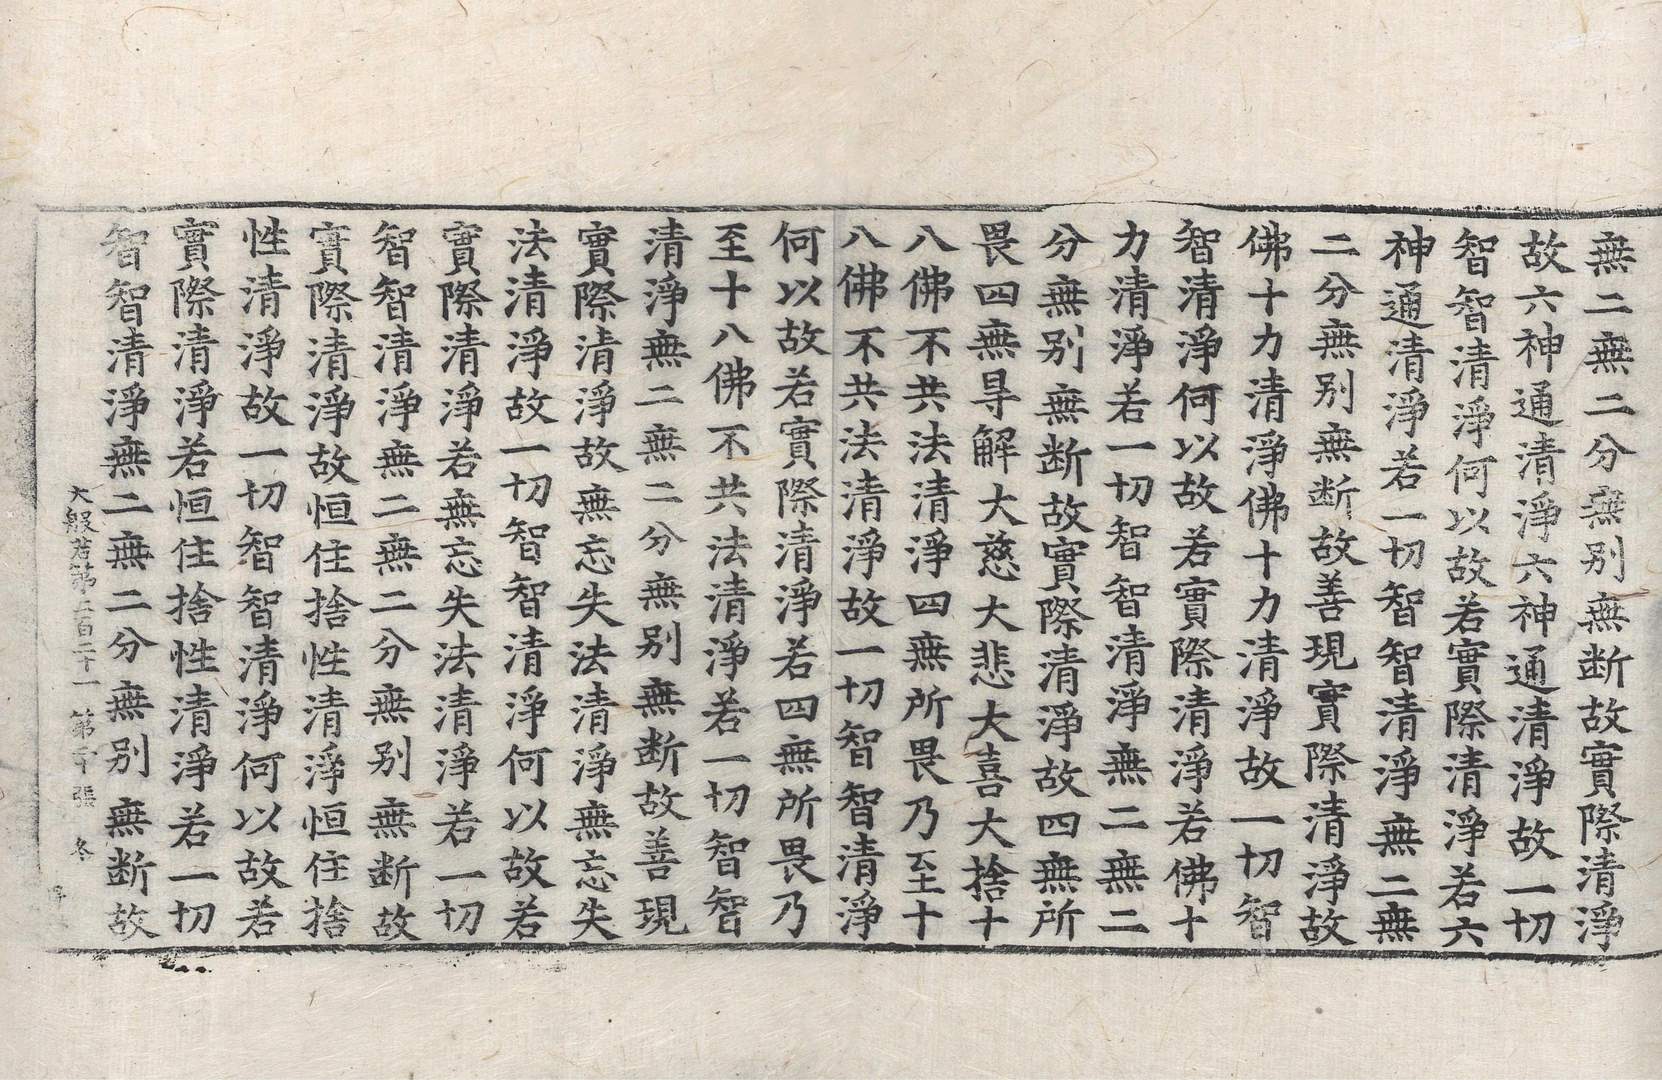 無二無二分無別無断故實際清淨
故六神通清淨六神通清淨故一切
智智清淨何以故若實際清淨若六
神通清淨若一切智智清淨無二無
二分無別無断故善現實際清淨故
佛十力清淨佛十力清淨故一切智
智清淨何以故若實際清淨若佛十
力清淨若一切智智清淨無二無二
分無別無断故實際清淨故四無所
畏四無㝵解大慈大悲大喜大捨十
八佛不共法清淨四無所畏乃至十
八佛不共法清淨故一切智智清淨
何以故若實際清淨若四無所畏乃
至十八佛不共法清淨若一切智智
清淨無二無二分無別無断故善現
實際清淨故無忘失法清淨無忘失
法清淨故一切智智清淨何以故若
實際清淨若無忘失法清淨若一切
智智清淨無二無二分無別無断故
實際清淨故恒住捨性清淨恒住捨
性清淨故一切智智清淨何以故若
實際清淨若恒住捨性清淨若一切
智智清淨無二無二分無別無断故
大般若第二百二十一 第二十張 冬